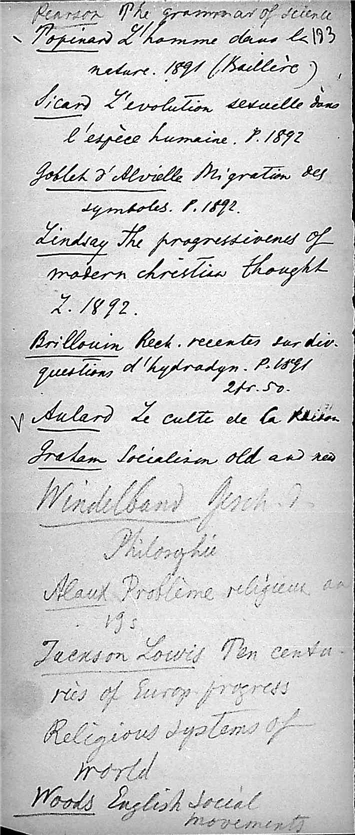 Pearson The grammar of science
Topinard L'homme dans la 193
nature. 1891 (Baillère)
Sicard L'evolution sexuelle dans
l'espèce humaine. P. 1892
Goblet d'Alvielle Migration des
symboles. P. 1892.
Lindsay The progressiveness of
modern christian thought
L. 1892.
Brillouin Rech. recentes sur div.
questions d'hydrodyn. P. 1891
2fr. 50.
V Aulard Le culte de la raison
Graham Socialism old and new
Windelband Gesch. d.
Philosophie
Alaux Problème religieux au
19 s
Jackson Lowis Ten centu-
ries of Europ. progress
Religious systems of
world
Woods English social
movements